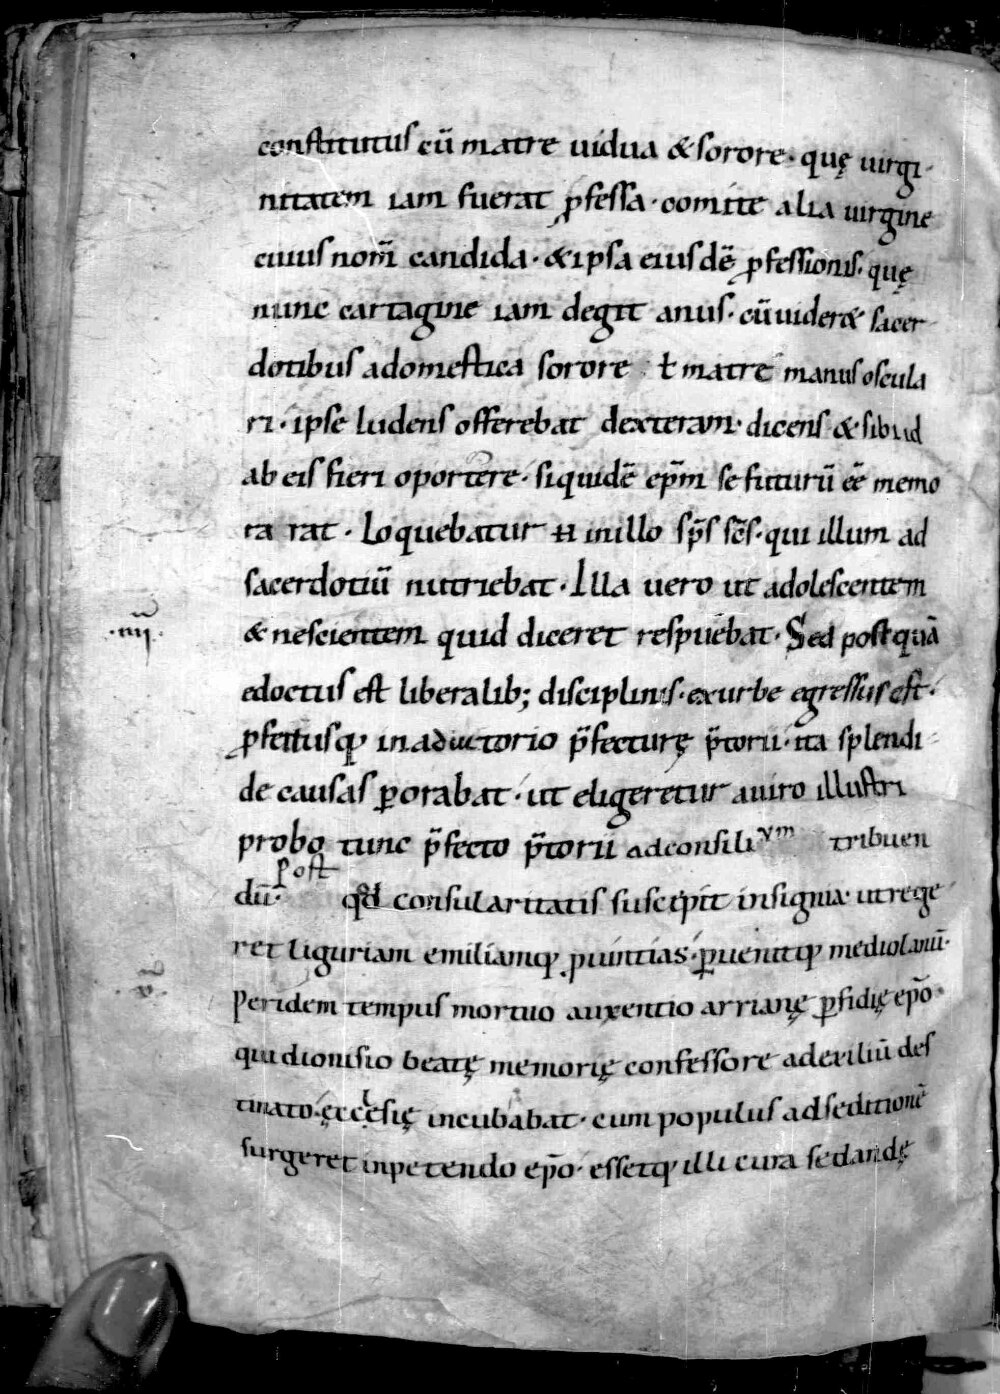 constitutus cū matre uidua & sorore · quę uirgi
nitatem iam fuerat ꝓfessa · comite alia uirgine
cuius nom̄ candida · & ipsa eiusdē ꝓfessionis · quę
nunc cartagine iam degit anus · cū uider& sacer
dotibus a domestica sorore ł matre manus oscula
ri · ipse ludens offerebat dexteram · dicens & sibi id
ab eis fieri oportere · siquidē ep̄m se futurū eē memo
ra rat · Loquebatur ħ in illo sp̄s sc̄s · qui illum ad
sacerdotiū nutriebat · Illa uero ut adolescentem
·iiii·
& nescientem quid diceret respuebat · Sed postquā
edoctus est liberalib; disciplinis · ex urbe egressus est ·
ꝓfectusqꝫ in adductorio p̄fecturę p̄torii · ita splendi
de causas ꝑorabat · ut eligeretur a uiro illustri
probo tunc p̄fecto p̄torii ad consiliVm tribuen
dū · Post qd̄ consularitatis suscepit insignia · ut rege
ret liguriam emiliamqꝫ puintias · ꝑuenitqꝫ mediolanū ·
Per idem tempus mortuo auxentio arrianę ꝑfidię ep̄o ·
qui dionisio beatę memorię confessore ad exiliū des
tinato · ęcclesię incubabat · cum populus ad seditionē
surgeret in petendo ep̄o · essetqꝫ illi cura sedandę